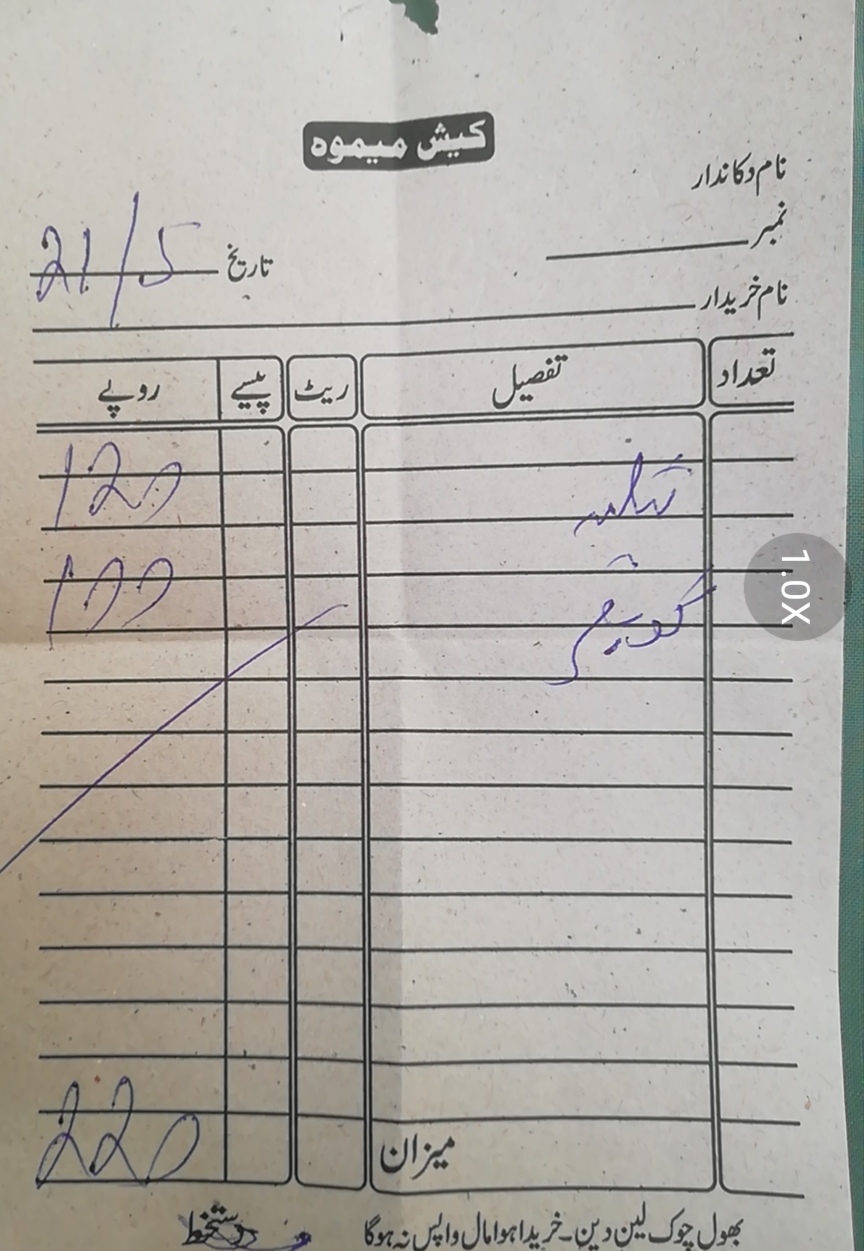 کیش میموہ
نام دکاندار
نمبر
تاریخ 21/5
نام خریدار
تعداد تفصیل ریٹ پیسے روپے
120
100
میزان 220
بھول چوک لین دین۔خریدا ہوا مال واپس نہ ہوگا دستخط
1.0X